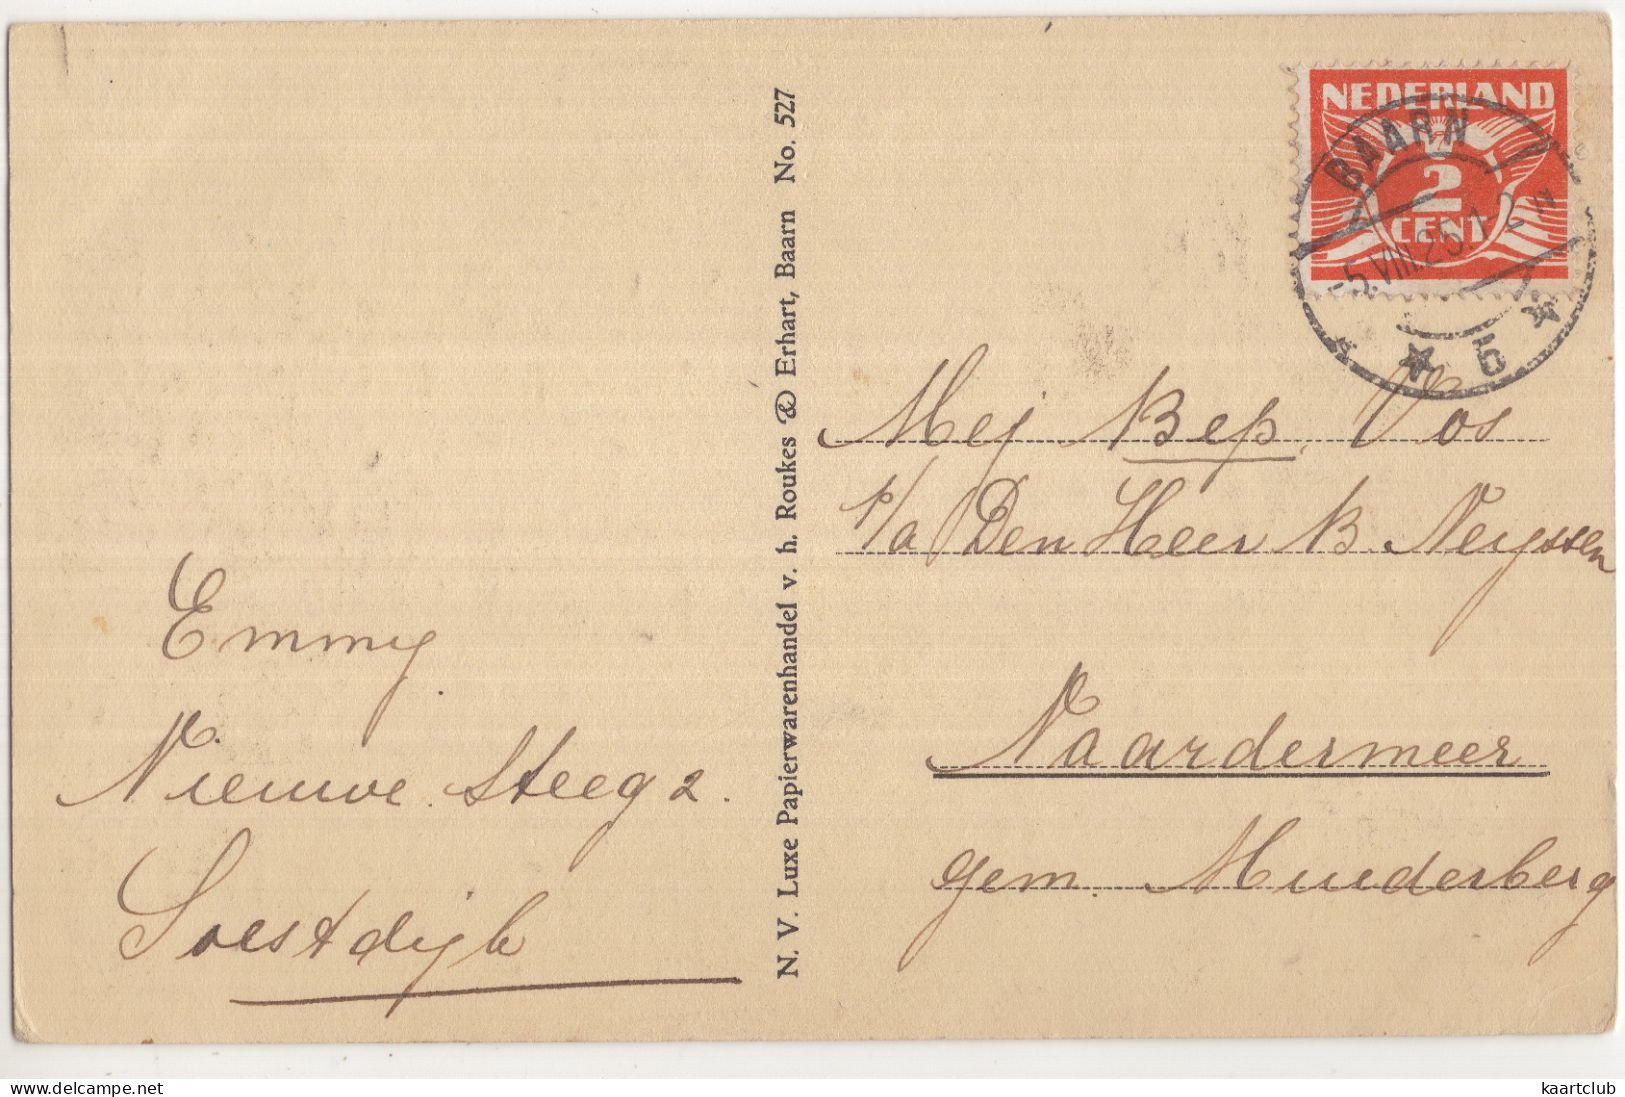 Emmy.
Nieuwe Steeg 2.
Soestdijk
N. V. Luxe Papierwarenhandel v. h. Roukes & Erhart, Baarn No. 527
NEDERLAND
2
CENT
BAARN
-5.VIII.25.1-2N
5
Mej Bep Vos
p/a Den Heer B. Neijssen
Naardermeer
gem. Muiderberg
delcampe.net
kaartclub